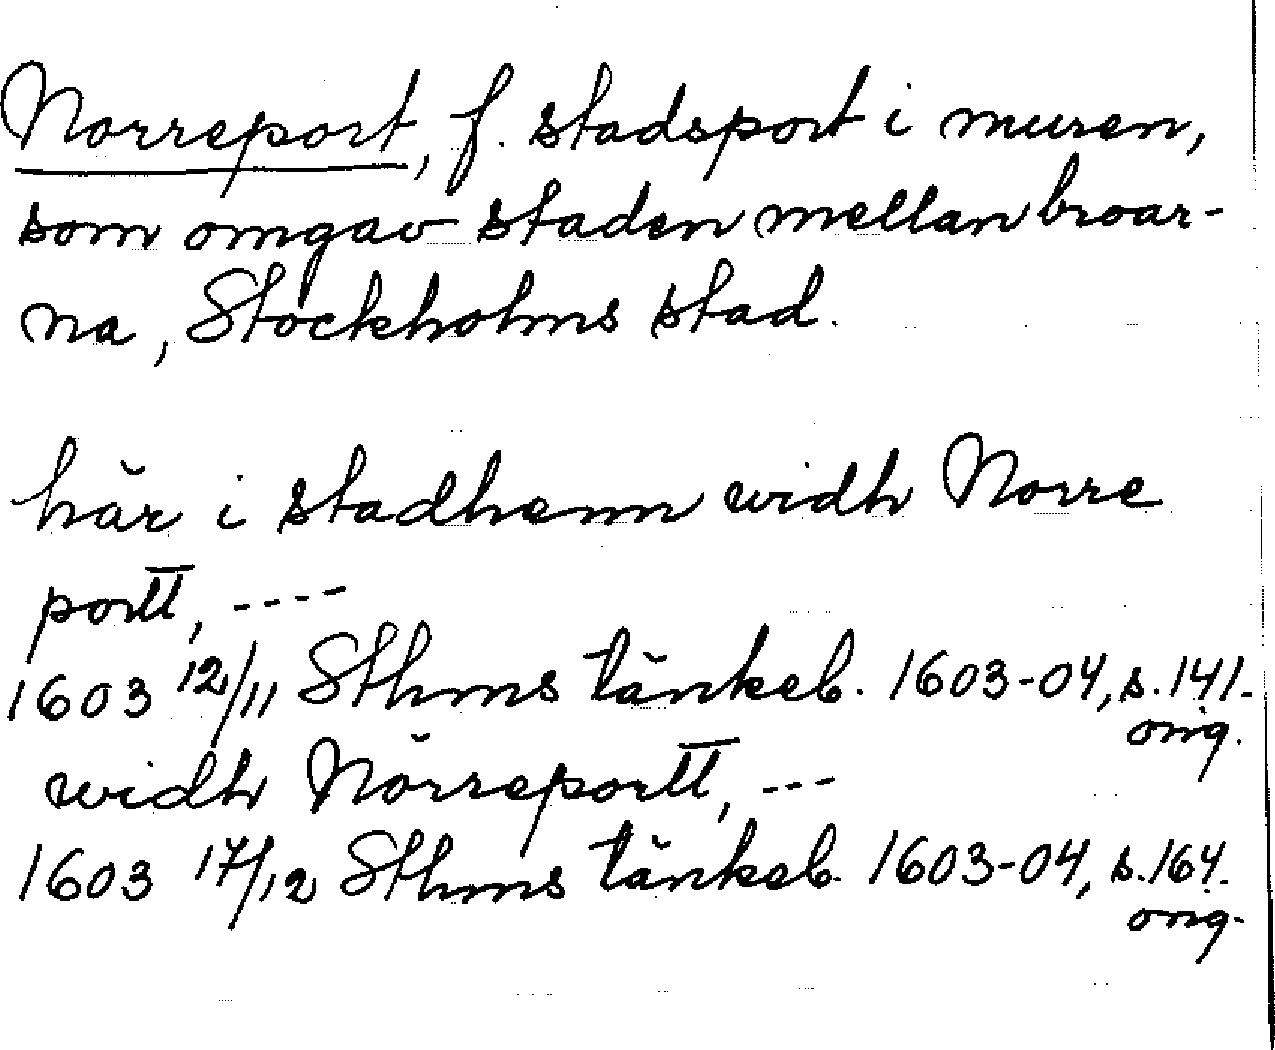 Norreport, f. stadsport i muren,
som omgav staden mellan broar-
na, Stockholms stad.
här i stadhenn widh Norre
portt, ----
1603 12/11 Sthms tänkeb. 1603-04, s. 141.
orig.
widh Nörreportt, ---
1603 17/12 Sthms tänkeb. 1603-04, s. 164.
orig.